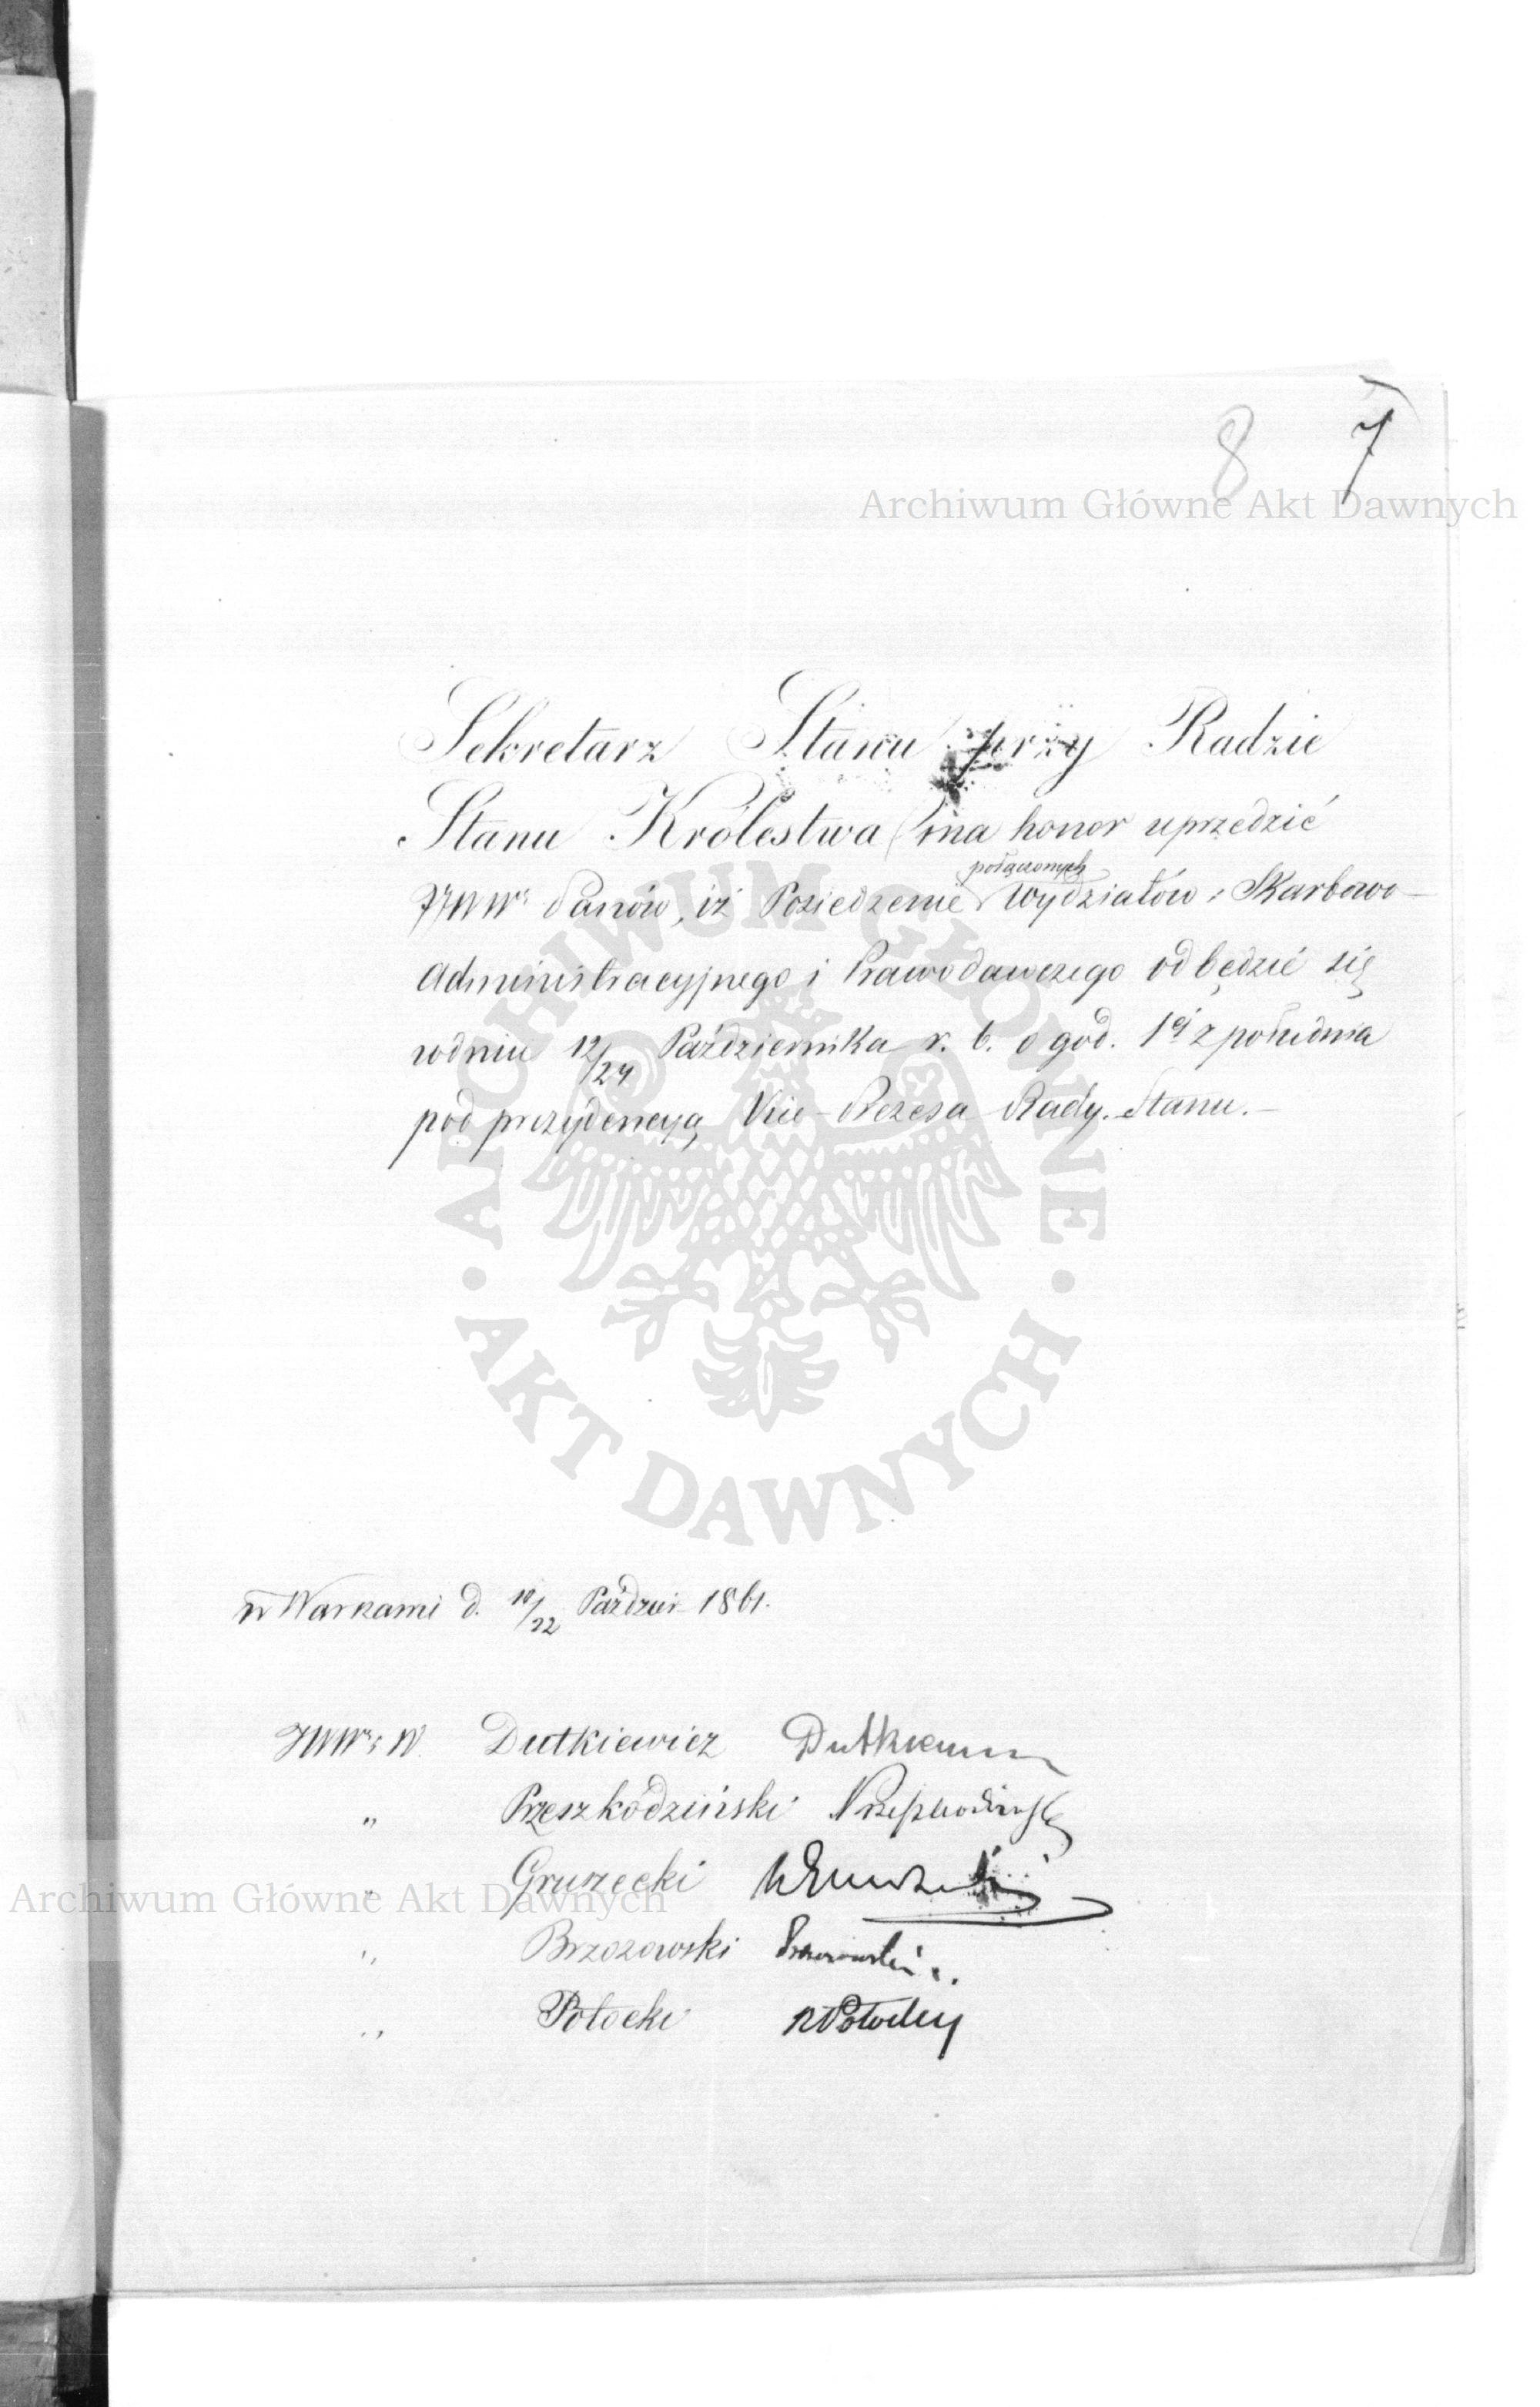 8 7
Archiwum Główne Akt Dawnych
Sekretarz Stanu przy Radzie
Stanu Królestwa ma honor uprzedzić
JWWch Panów, iż Posiedzenie połączonych Wydziałów: Skarbowo-
Administracyjnego i Prawodawczego odbędzie się
w dniu 12/24 Października r. b. o god. 1ej z południa
pod prezydencyą Vice-Prezesa Rady Stanu.-
ARCHIWUM GŁÓWNE
AKT DAWNYCH
w Warszawie d. 10/22 Paździer 1861.
Dutkiewicz Dutkiewicz
" Przeszkodziński Przeszkodziński
" Gruszecki
Archiwum Główne Akt Dawnych
" Brzozowski Brzozowski
" Potocki Potocki